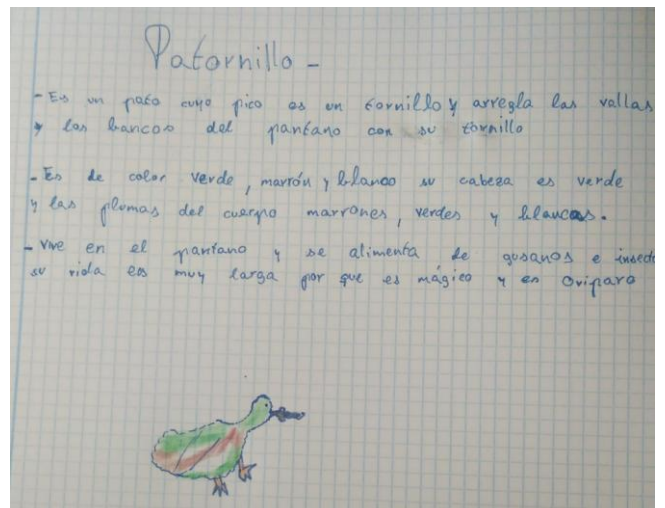 Patornillo -
- Es un pato cuyo pico es un tornillo y arregla las vallas
y los bancos del pantano con su tornillo
- Es de color verde, marrón y blanco su cabeza es verde
y las plumas del cuerpo marrones, verdes y blancas.
- Vive en el pantano y se alimenta de gusanos e insecto
su vida es muy larga por que es mágico y es Oviparo